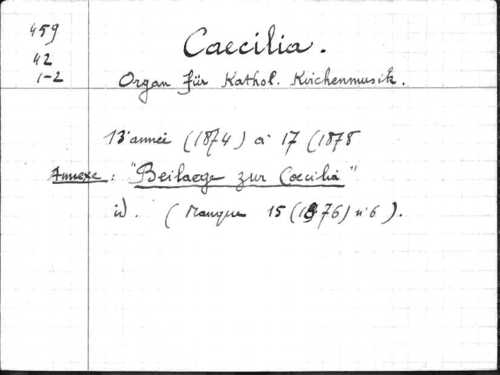 459
42
1-2
Caecilia.
Organ für Kathol. Kirchenmusik.
13e année (1874) à 17 (1878
Annexe : "Beilaege zur Caecilia"
id. (Manque 15 (1876) n°6).